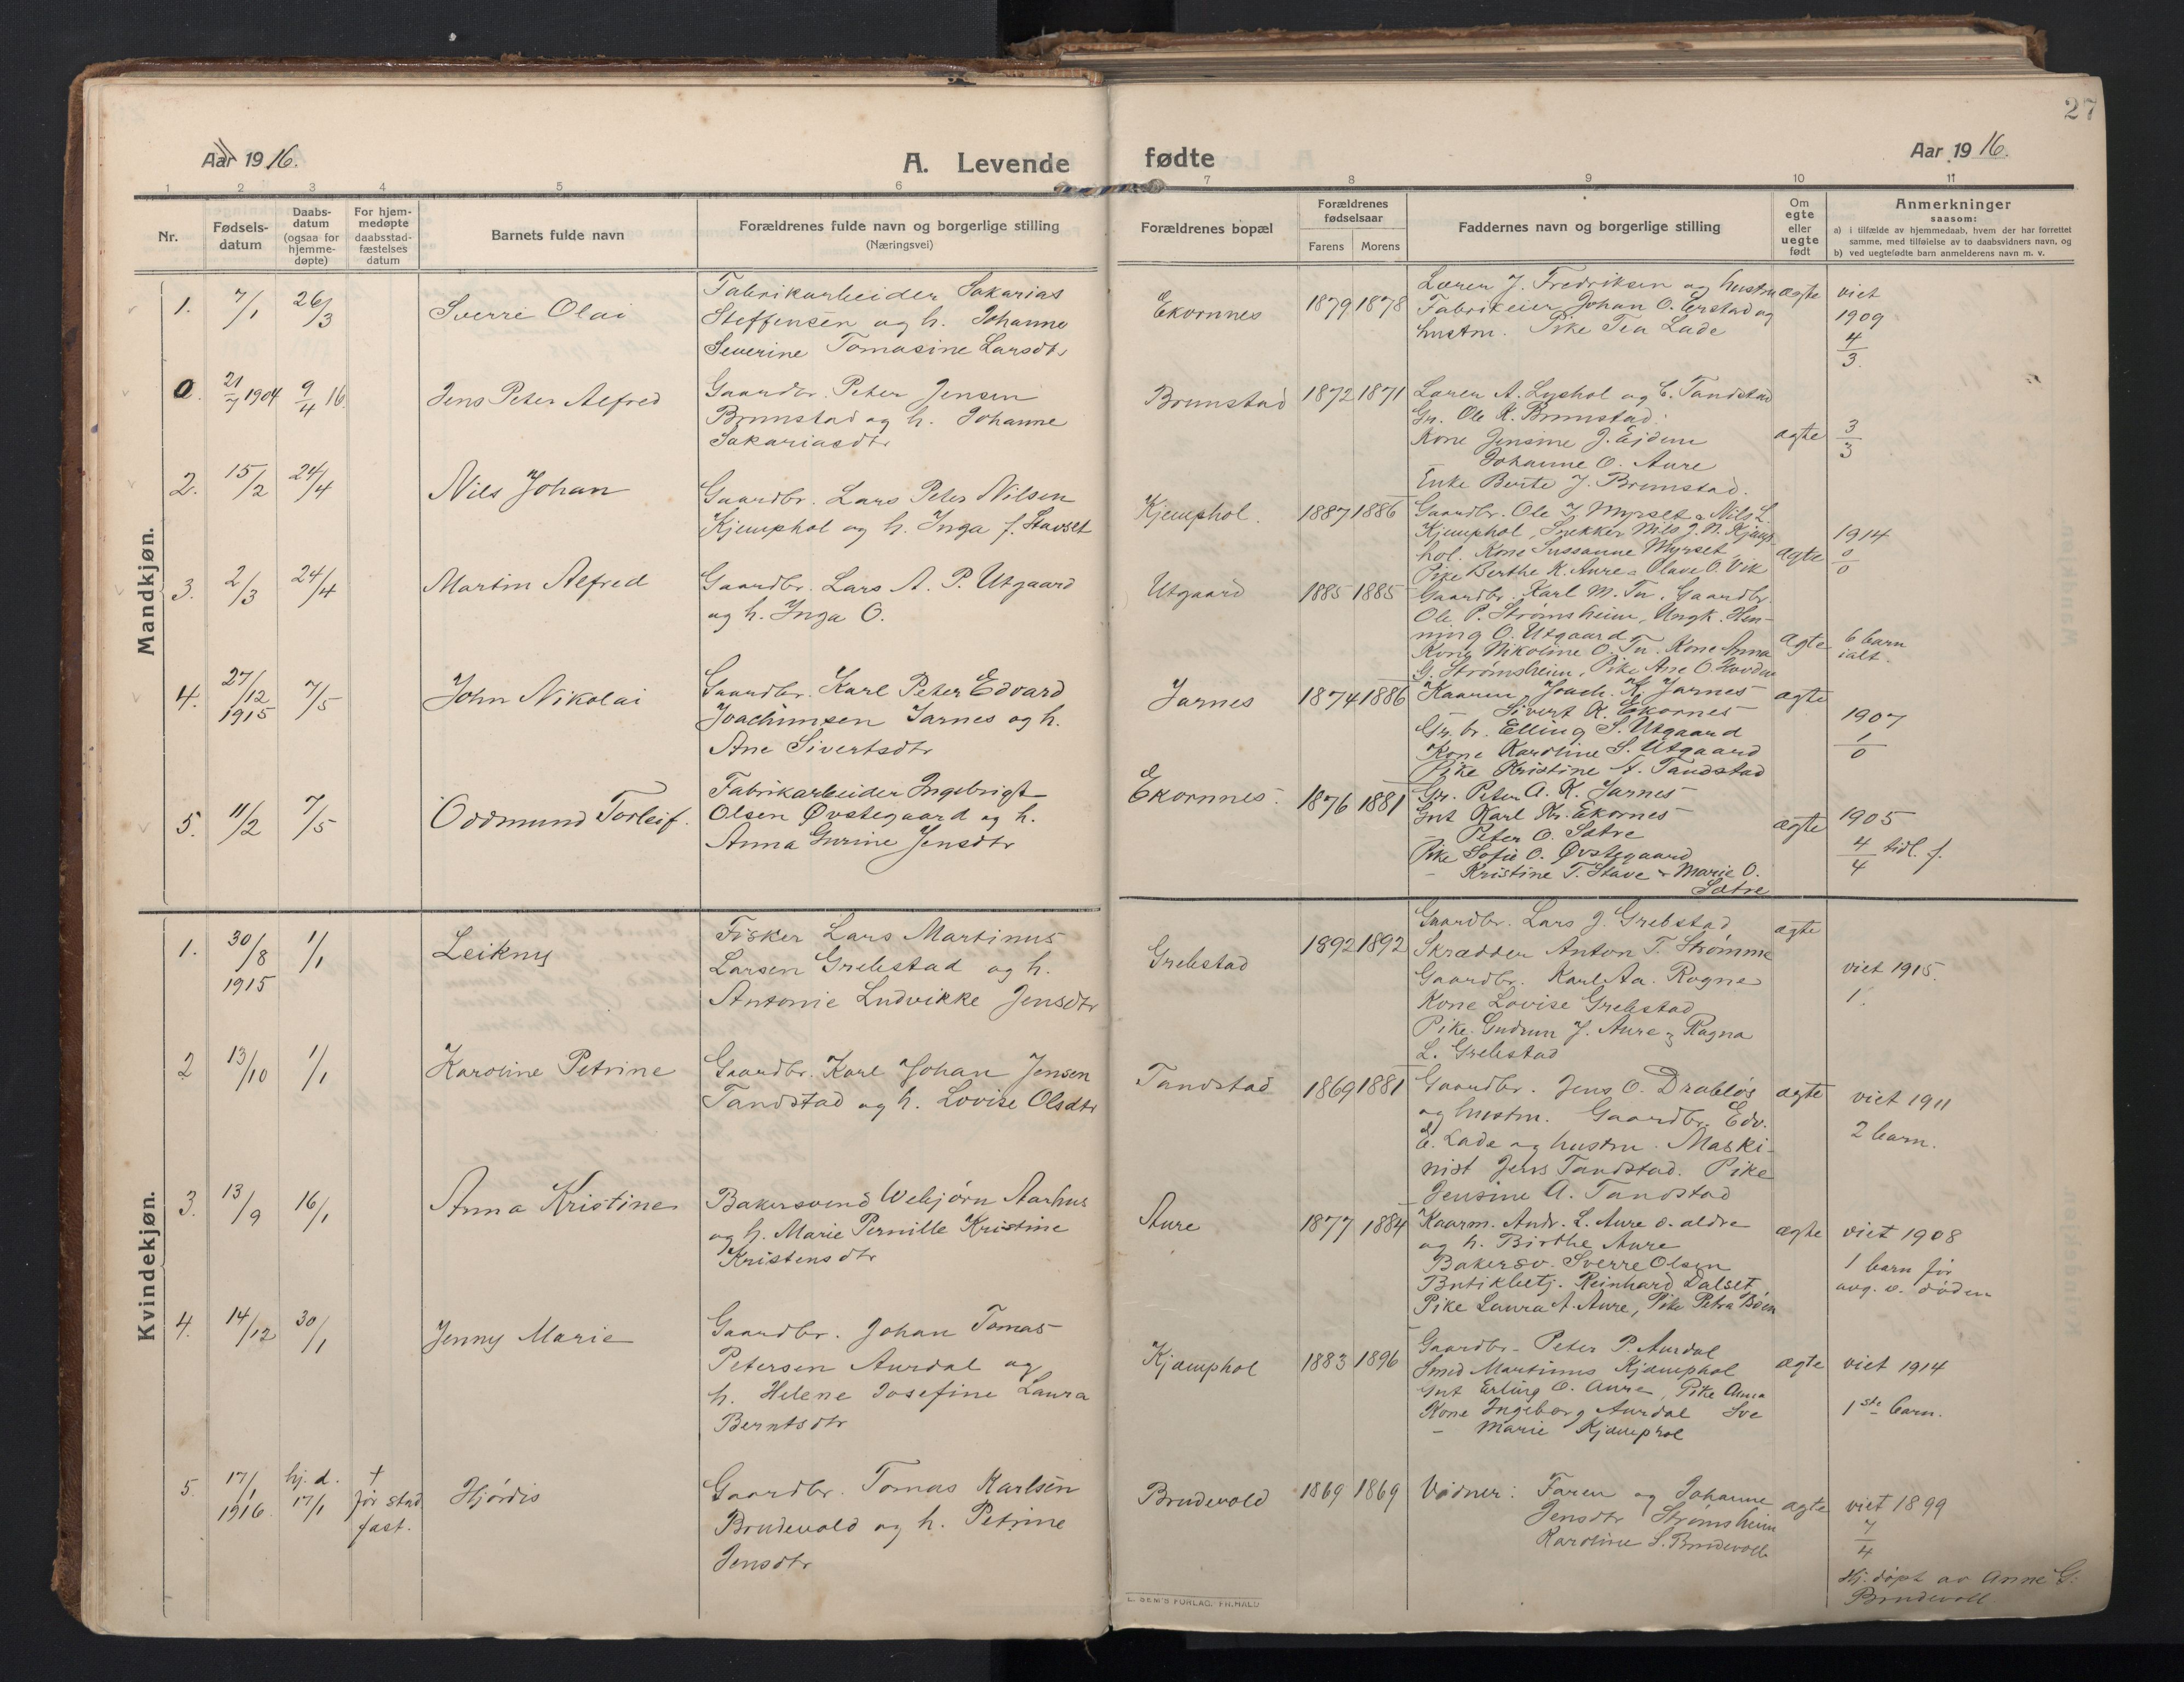 27
Aar 1916.
A. Levende
fødte
Aar 1916.
1 2 3 4 5 6 7 8 9 10 11
Nr.
Fødsels-
datum
Daabs-
datum
(ogsaa for
hjemme-
døpte)
For hjem-
medøpte
daabsstad-
fæstelses
datum
Barnets fulde navn
Forældrenes fulde navn og borgerlige stilling
(Næringsvei)
Forældrenes bopæl
Forældrenes
fødselsaar
Farens Morens
Faddernes navn og borgerlige stilling
Om
egte
eller
uegte
født
Anmerkninger
saasom:
a) i tilfælde av hjemmedaab, hvem der har forrettet
samme, med tilføielse av to daabsvidners navn, og
b) ved uegtefødte barn anmelderens navn m. v.
Mandkjøn.
1. 7/1 26/3 Sverre Olai
Fabrikarbeider Sakarias
Steffensen og h. Johanne
Severine Tomasine Larsdtr
Ekornnes 1879 1878
Lærer J. Fredriksen og hustru
Fabrikeier Johan O. Erstad og
hustru. Pike Tea Lade
ægte
viet
1909
4/3.
0. 21/7 1904 9/4 16. Jens Peter Alfred
Gaardbr. Peter Jensen
Brunstad og h. Johanne
Sakariasdtr
Brunstad 1872 1871
Lærer A. Lyshol og C. Tandstad
Gr. Ole K. Brunstad.
Kone Jensine J. Eidem
Johanne O. Aure
Enke Berte J. Brunstad.
ægte
3/3
2. 15/2 24/4 Nils Johan
Gaardbr. Lars Peter Nilsen
Kjemphol og h. Inga f. Stavset
Kjemphol. 1887 1886
Gaardbr. Ole J. Myrset & Nils L.
Kjemphol, Snekker Nils J. N. Kjemp-
hol. Kone Sussanne Myrset,
Pike Berthe K. Aure & Olave O. Vik
ægte
1914
0/0
3. 2/3 24/4 Martin Alfred
Gaardbr. Lars A. P. Utgaard
og h. Inga O.
Utgaard 1885 1885
Gaardbr. Karl M. Tu, Gaardbr.
Ole P. Strømsheim, Ungk. Hen-
ning O. Utgaard
Kone Nikoline O. Tu. Kone Anna
G. Strømsheim, Pike Ane O. Hovden
ægte
6 barn
ialt.
4. 27/12 1915 7/5 John Nikolai
Gaardbr. Karl Peter Edvard
Joachimsen Jarnes og h.
Ane Sivertsdtr
Jarnes 1874 1886
Kaarm. Joach. K. Jarnes
Sivert K. Ekornes
Gr. br. Elling S. Utgaard
Kone Karoline S. Utgaard
Pike Kristine A. Tandstad
ægte
1907
1/0
5. 11/2 7/5 Oddmund Torleif.
Fabrikarbeider Ingebrigt
Olsen Øvstegaard og h.
Anna Gurine Jensdtr
Ekornnes. 1876 1881
Gr. Peter A. K. Jarnes
Gut Karl Kr. Ekornes
– Peter O. Sætre
Pike Sofie O. Øvstegaard
– Kristine T. Stave & Marie O.
Sætre
ægte
1905
4/4 tidl. f.
Kvindekjøn.
1. 30/8 1915 1/1 Leikny
Fisker Lars Martinus
Larsen Grebstad og h.
Antonie Ludvikke Jensdtr
Grebstad 1892 1892
Gaardbr. Lars J. Grebstad
Skrædder Anton T. Strømme
Gaardbr. Karl Aa. Rogne
Kone Lovise Grebstad
Pike. Gudrun J. Aure & Ragna
L. Grebstad
ægte
viet 1915.
1.
2 13/10 1/1 Karoline Petrine
Gaardbr. Karl Johan Jensen
Tandstad og h. Lovise Olsdtr
Tandstad 1869 1881
Gaardbr. Jens O. Drabløs
og hustru. Gaardbr. Edv.
E. Lade og hustru. Maski-
nist Jens Tandstad. Pike
Jensine A. Tandstad
ægte
viet 1911
2 barn.
3. 13/9 16/1 Anna Kristine
Bakersvend Webjørn Aarhus
og h. Marie Pernille Kristine
Kristensdtr
Aure 1877 1884
Kaarm. Andr. L. Aure d. ældre
og h. Birthe Aure
Bakersv. Sverre Olsen
Butikbetj. Reinhard Dalset
Pike Laura A. Aure, Pike Petra Bøen
ægte
viet 1908
1 barn før
avg. v. døden
4. 14/12 30/1 Jenny Marie
Gaardbr. Johan Tomas
Petersen Aurdal og
h. Helene Josefine Laura
Berntsdtr
Kjæmphol 1883 1896
Gaardbr. Peter P. Aurdal
Smed Martinus Kjæmphol
Gut Erling O. Aure, Pike Anna
Kone Ingeborg Aurdal
– Marie Kjæmphol
ægte
viet 1914
1ste barn.
5. 17/1 1916 hj. d. 17/1 † før stad fæst. Hjørdis
Gaardbr. Tomas Karlsen
Brudevold og h. Petrine
Jensdtr
Brudevold 1869 1869
Vidner: Faren og Johanne
Jensdtr Strømsheim
Karoline S. Brudevoll
ægte
viet 1899
7/4
Hj. døpt av Anne G.
Brudevoll
L. SEM'S FORLAG, FR.HALD